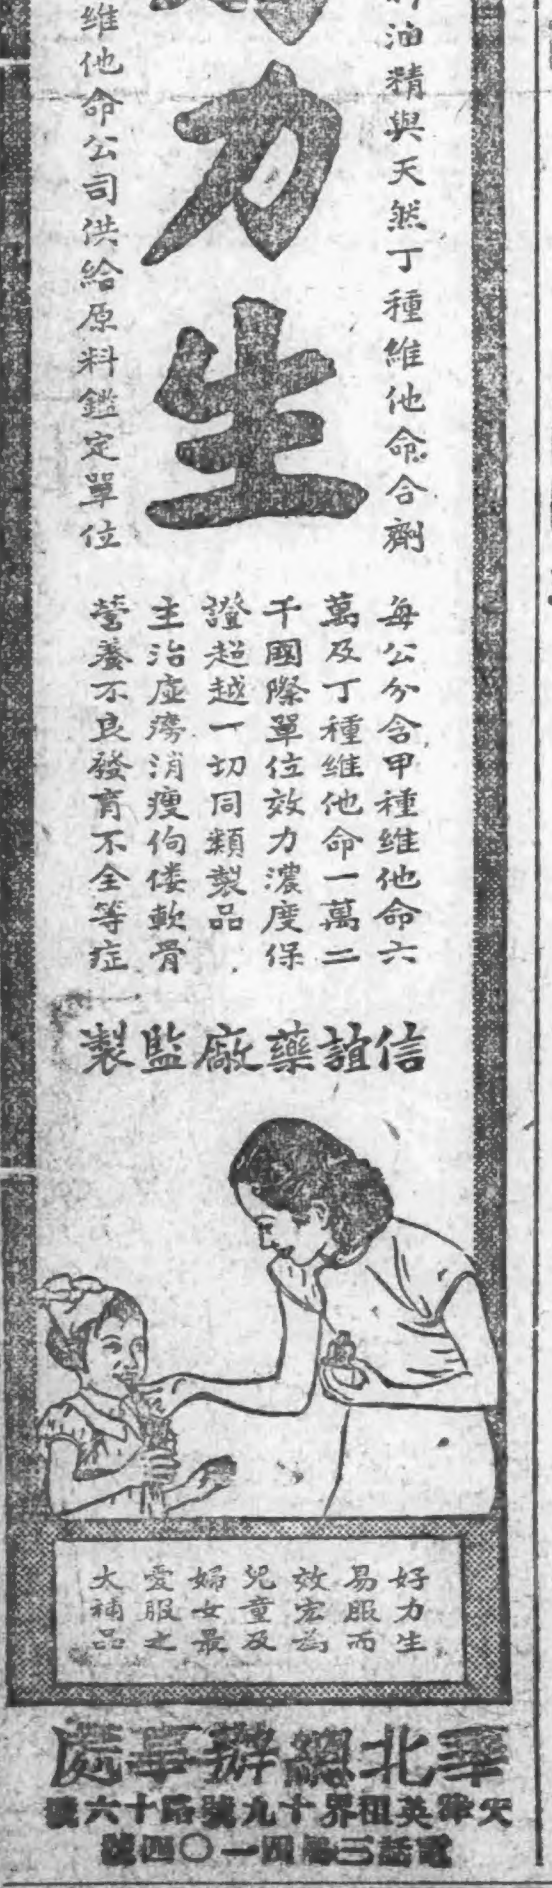 油精與天然丁種維他命合劑
力生
維他命公司供給原料鑑定單位
每公分含甲種維他命六
萬及丁種維他命一萬二
千國際單位效力濃度保
證超越一切同類製品
主治虛癆消瘦佝僂軟骨
營養不良發育不全等症
信誼藥廠監製
好力生
易服而
效宏為
兒童及
婦女最
愛服之
大補品
華北總辦事處
天津英租界十九號路十六號
電話三局四一〇四號